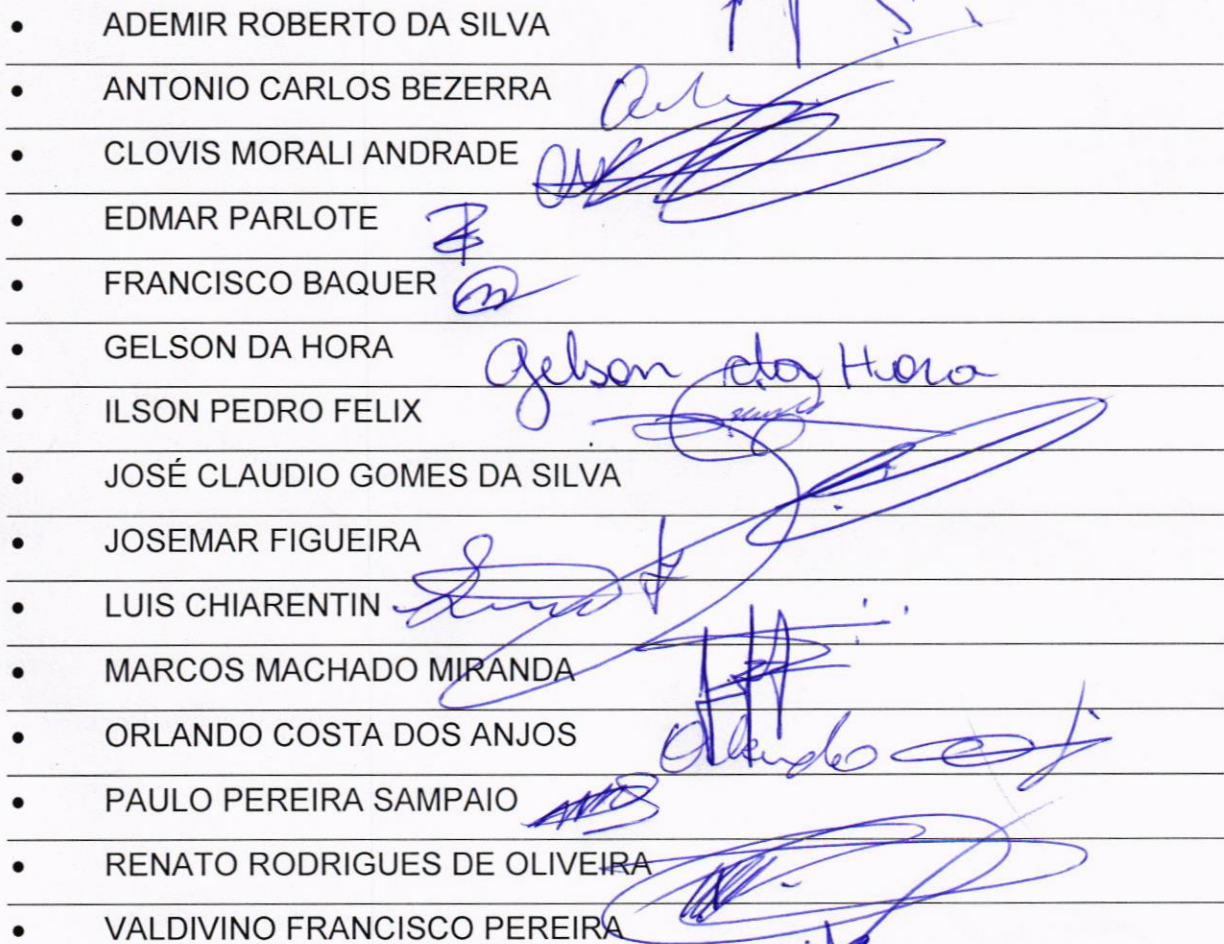 • ADEMIR ROBERTO DA SILVA
• ANTONIO CARLOS BEZERRA
• CLOVIS MORALI ANDRADE
• EDMAR PARLOTE
• FRANCISCO BAQUER
• GELSON DA HORA Gelson da Hora
• ILSON PEDRO FELIX
• JOSÉ CLAUDIO GOMES DA SILVA
• JOSEMAR FIGUEIRA
• LUIS CHIARENTIN
• MARCOS MACHADO MIRANDA
• ORLANDO COSTA DOS ANJOS Orlando
• PAULO PEREIRA SAMPAIO
• RENATO RODRIGUES DE OLIVEIRA
• VALDIVINO FRANCISCO PEREIRA